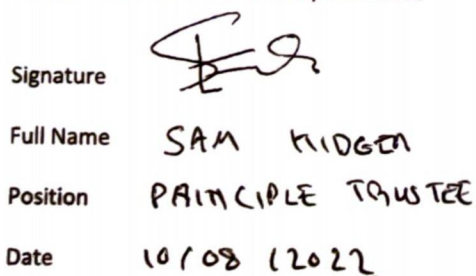 Signature
Full Name SAM KIDGER
Position PRINCIPLE TRUSTEE
Date 10/08/2022